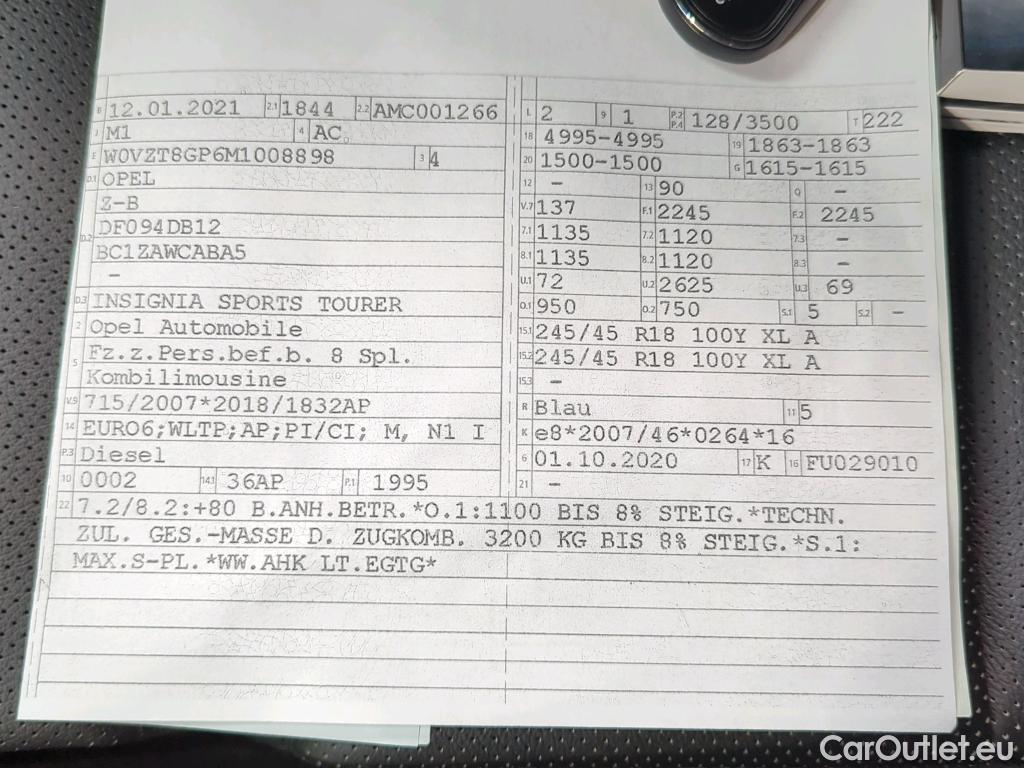 B 12.01.2021 2.1 1844 2.2 AMC001266
J M1 4 AC
E W0VZT8GP6M1008898 3 4
D.1 OPEL
Z-B
D.2 DF094DB12
BC1ZAWCABA5
-
D.3 INSIGNIA SPORTS TOURER
2 Opel Automobile
5 Fz.z.Pers.bef.b. 8 Spl.
Kombilimousine
V.9 715/2007*2018/1832AP
14 EURO6;WLTP;AP;PI/CI; M, N1 I
P.3 Diesel
10 0002 14.1 36AP P.1 1995
L 2 9 1 P.2 P.4 128/3500 T 222
18 4995-4995 19 1863-1863
20 1500-1500 G 1615-1615
12 - 13 90 Q -
V.7 137 F.1 2245 F.2 2245
7.1 1135 7.2 1120 7.3 -
8.1 1135 8.2 1120 8.3 -
U.1 72 U.2 2625 U.3 69
O.1 950 O.2 750 S.1 5 S.2 -
15.1 245/45 R18 100Y XL A
15.2 245/45 R18 100Y XL A
15.3 -
R Blau 11 5
K e8*2007/46*0264*16
6 01.10.2020 17 K 16 FU029010
21 -
22 7.2/8.2:+80 B.ANH.BETR.*O.1:1100 BIS 8% STEIG.*TECHN.
ZUL. GES.-MASSE D. ZUGKOMB. 3200 KG BIS 8% STEIG.*S.1:
MAX.S-PL.*WW.AHK LT.EGTG*
CarOutlet.eu